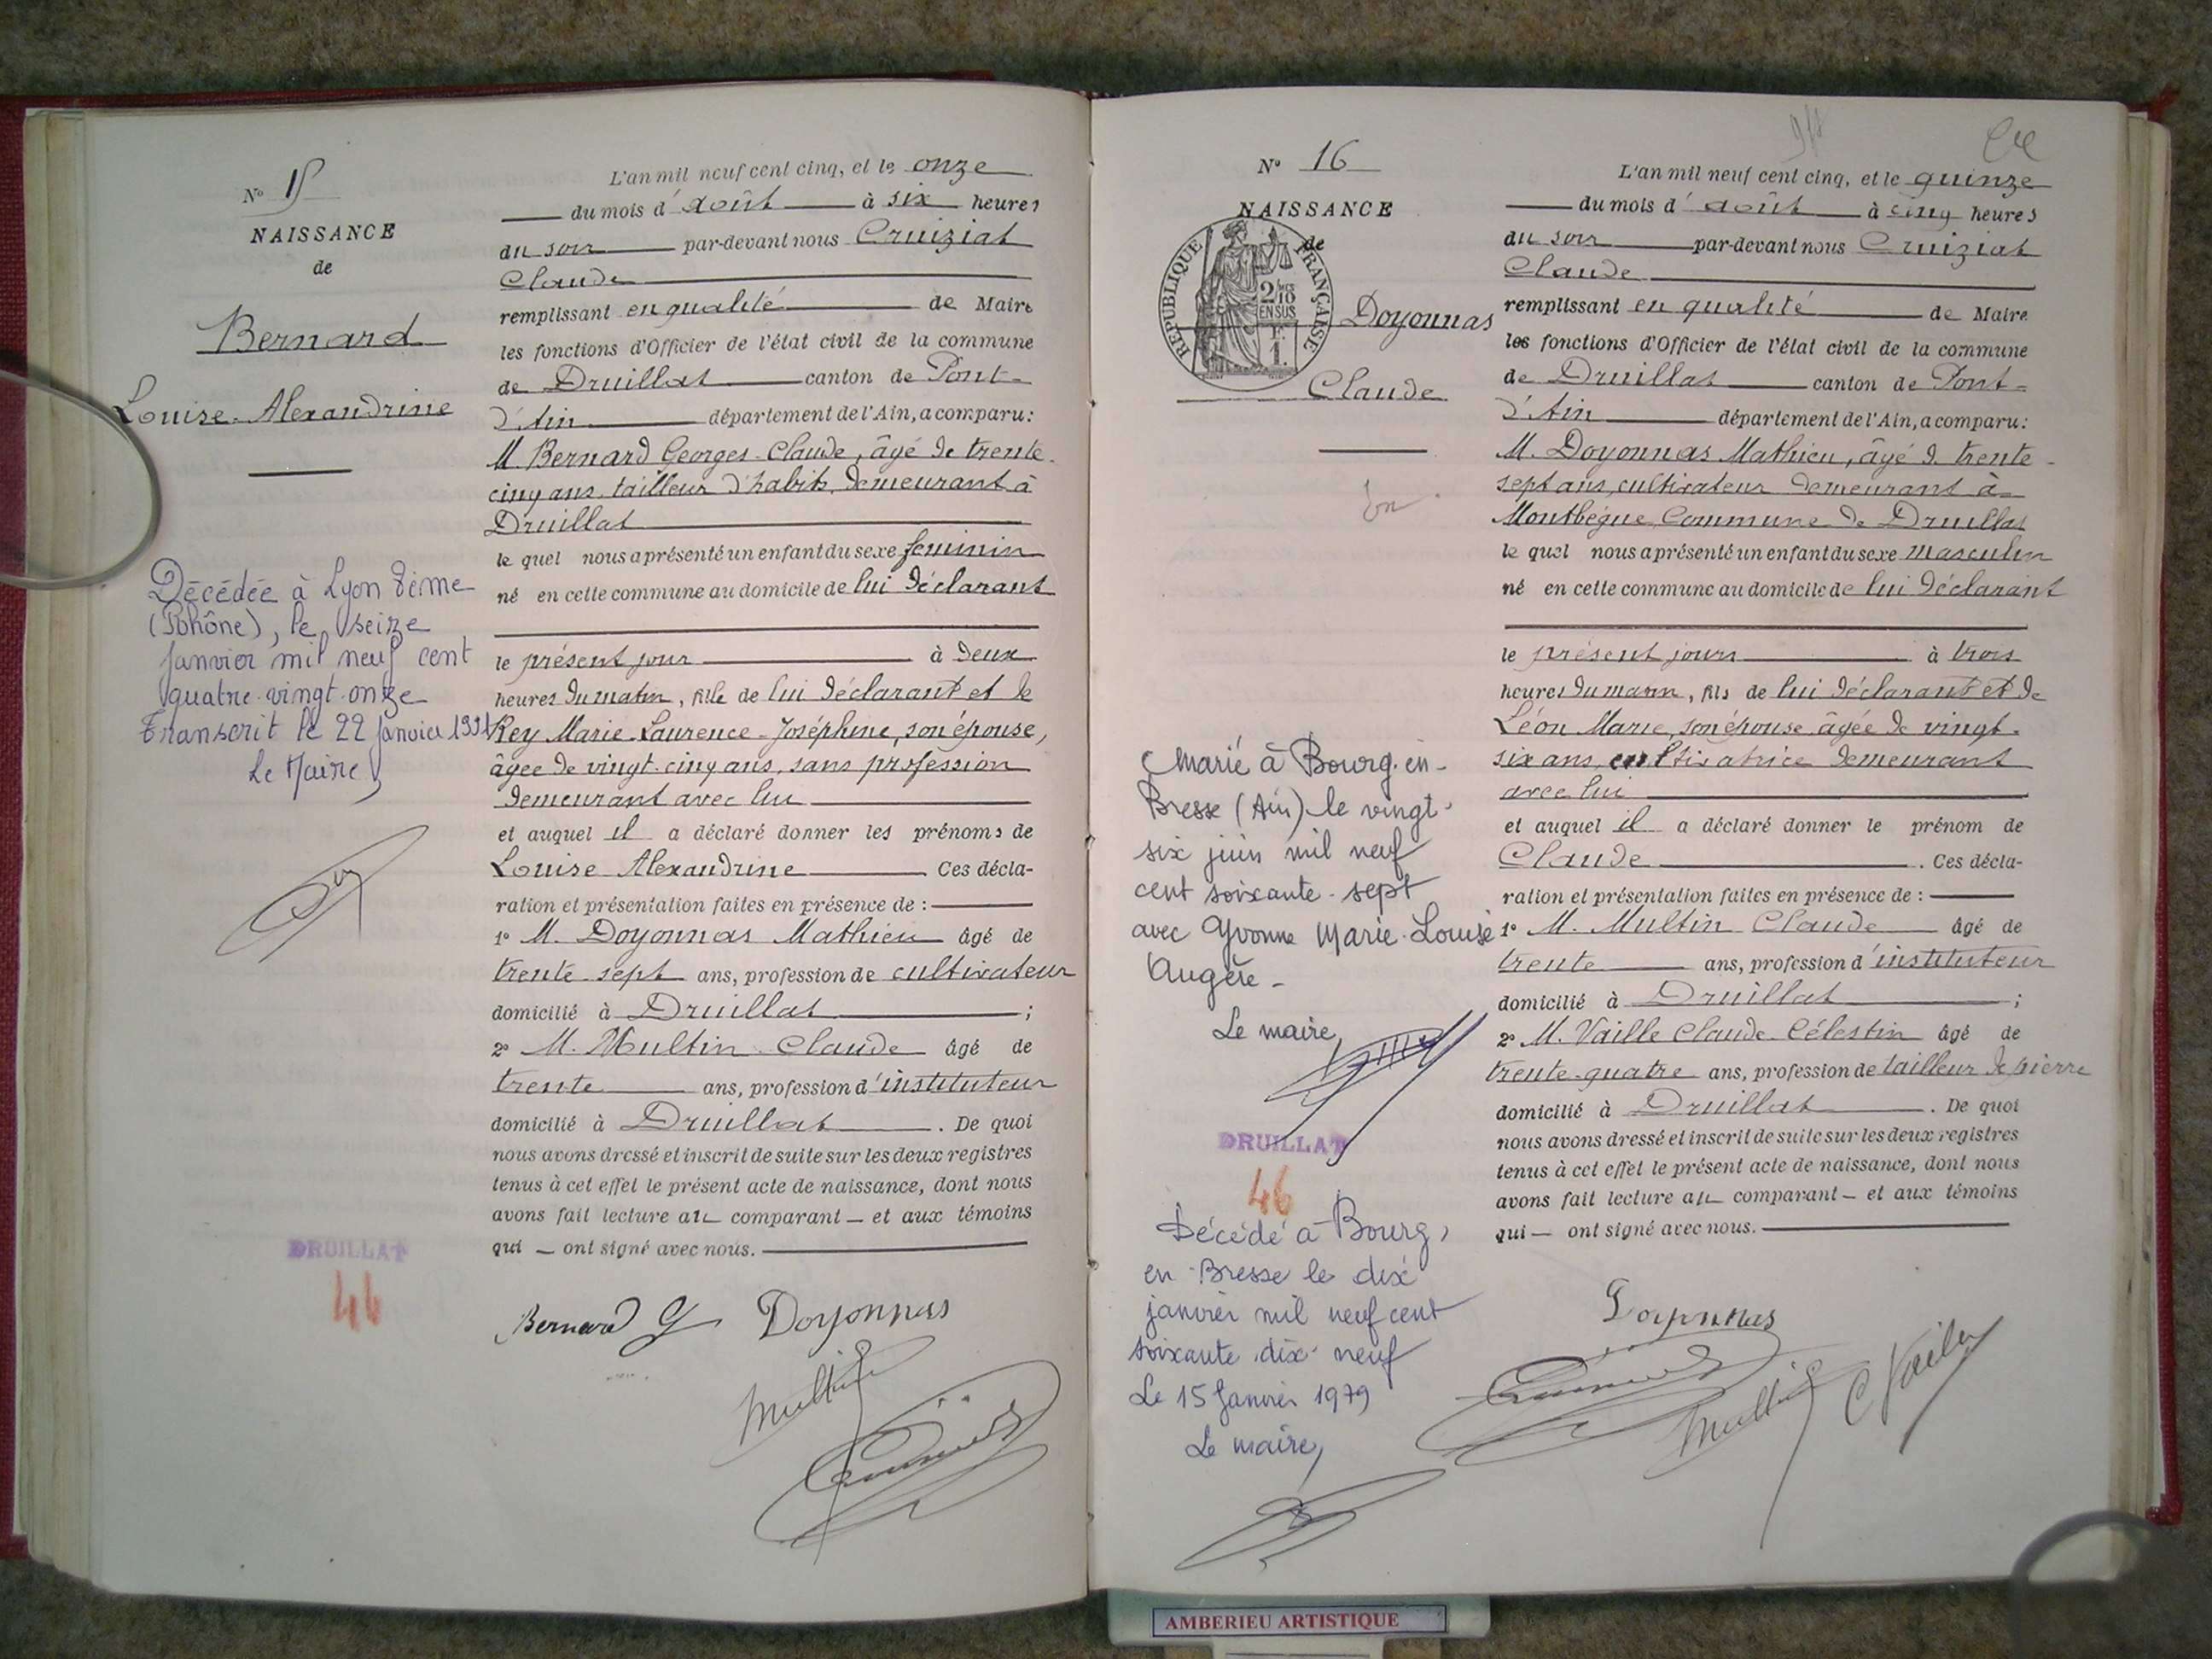 N° 15
NAISSANCE
de
Bernard
Louise-Alexandrine
Décédée à Lyon 8ème
(Rhône), le seize
janvier mil neuf cent
quatre-vingt-onze
Transcrit le 22 Janvier 1991
Le Maire,
DRUILLAT
46
L'an mil neuf cent cinq, et le onze
du mois d'août à six heures
du soir par-devant nous Cruiziat
Claude
remplissant en qualité de Maire
les fonctions d'Officier de l'état civil de la commune
de Druillat canton de Pont-
d'Ain département de l'Ain, a comparu:
M. Bernard Georges-Claude, âgé de trente-
cinq ans, tailleur d'habits, demeurant à
Druillat
le quel nous a présenté un enfant du sexe féminin
né en cette commune au domicile de lui déclarant
le présent jour à deux
heures du matin, fille de lui déclarant et de
Rey Marie-Laurence-Joséphine, son épouse,
âgée de vingt-cinq ans, sans profession
demeurant avec lui
et auquel il a déclaré donner les prénoms de
Louise Alexandrine Ces décla-
ration et présentation faites en présence de :
1° M. Doyonnas Mathieu âgé de
trente-sept ans, profession de cultivateur
domicilié à Druillat ;
2° M. Multin Claude âgé de
trente ans, profession d'instituteur
domicilié à Druillat . De quoi
nous avons dressé et inscrit de suite sur les deux registres
tenus à cet effet le présent acte de naissance, dont nous
avons fait lecture au comparant — et aux témoins
qui — ont signé avec nous.
Bernard G Doyonnas
Multin
N° 16
NAISSANCE
de
RÉPUBLIQUE FRANÇAISE
2/10
EN SUS
F.
1.
Doyonnas
Claude
Marié à Bourg-en-
Bresse (Ain) le vingt-
six juin mil neuf
cent soixante-sept
avec Yvonne Marie-Louise
Augère -
Le maire,
DRUILLAT
46
Décédé à Bourg-
en-Bresse le dix
janvier mil neuf cent
soixante-dix-neuf
Le 15 Janvier 1979
Le maire,
L'an mil neuf cent cinq, et le quinze
du mois d'août à cinq heures
du soir par-devant nous Cruiziat
Claude
remplissant en qualité de Maire
les fonctions d'Officier de l'état civil de la commune
de Druillat canton de Pont-
d'Ain département de l'Ain, a comparu:
M. Doyonnas Mathieu, âgé de trente-
sept ans, cultivateur demeurant à
Montbègue, Commune de Druillat
le quel nous a présenté un enfant du sexe masculin
né en cette commune au domicile de lui déclarant
le présent jours à trois
heures du matin, fils de lui déclarant et de
Léon Marie, son épouse âgée de vingt-
six ans, cultivatrice demeurant
avec lui
et auquel il a déclaré donner le prénom de
Claude . Ces décla-
ration et présentation faites en présence de :
1° M. Multin Claude âgé de
trente ans, profession d'instituteur
domicilié à Druillat ;
2° M. Vaille Claude-Célestin âgé de
trente-quatre ans, profession de tailleur de pierre
domicilié à Druillat . De quoi
nous avons dressé et inscrit de suite sur les deux registres
tenus à cet effet le présent acte de naissance, dont nous
avons fait lecture au comparant — et aux témoins
qui — ont signé avec nous.
Doyonnas
Multin
AMBERIEU ARTISTIQUE